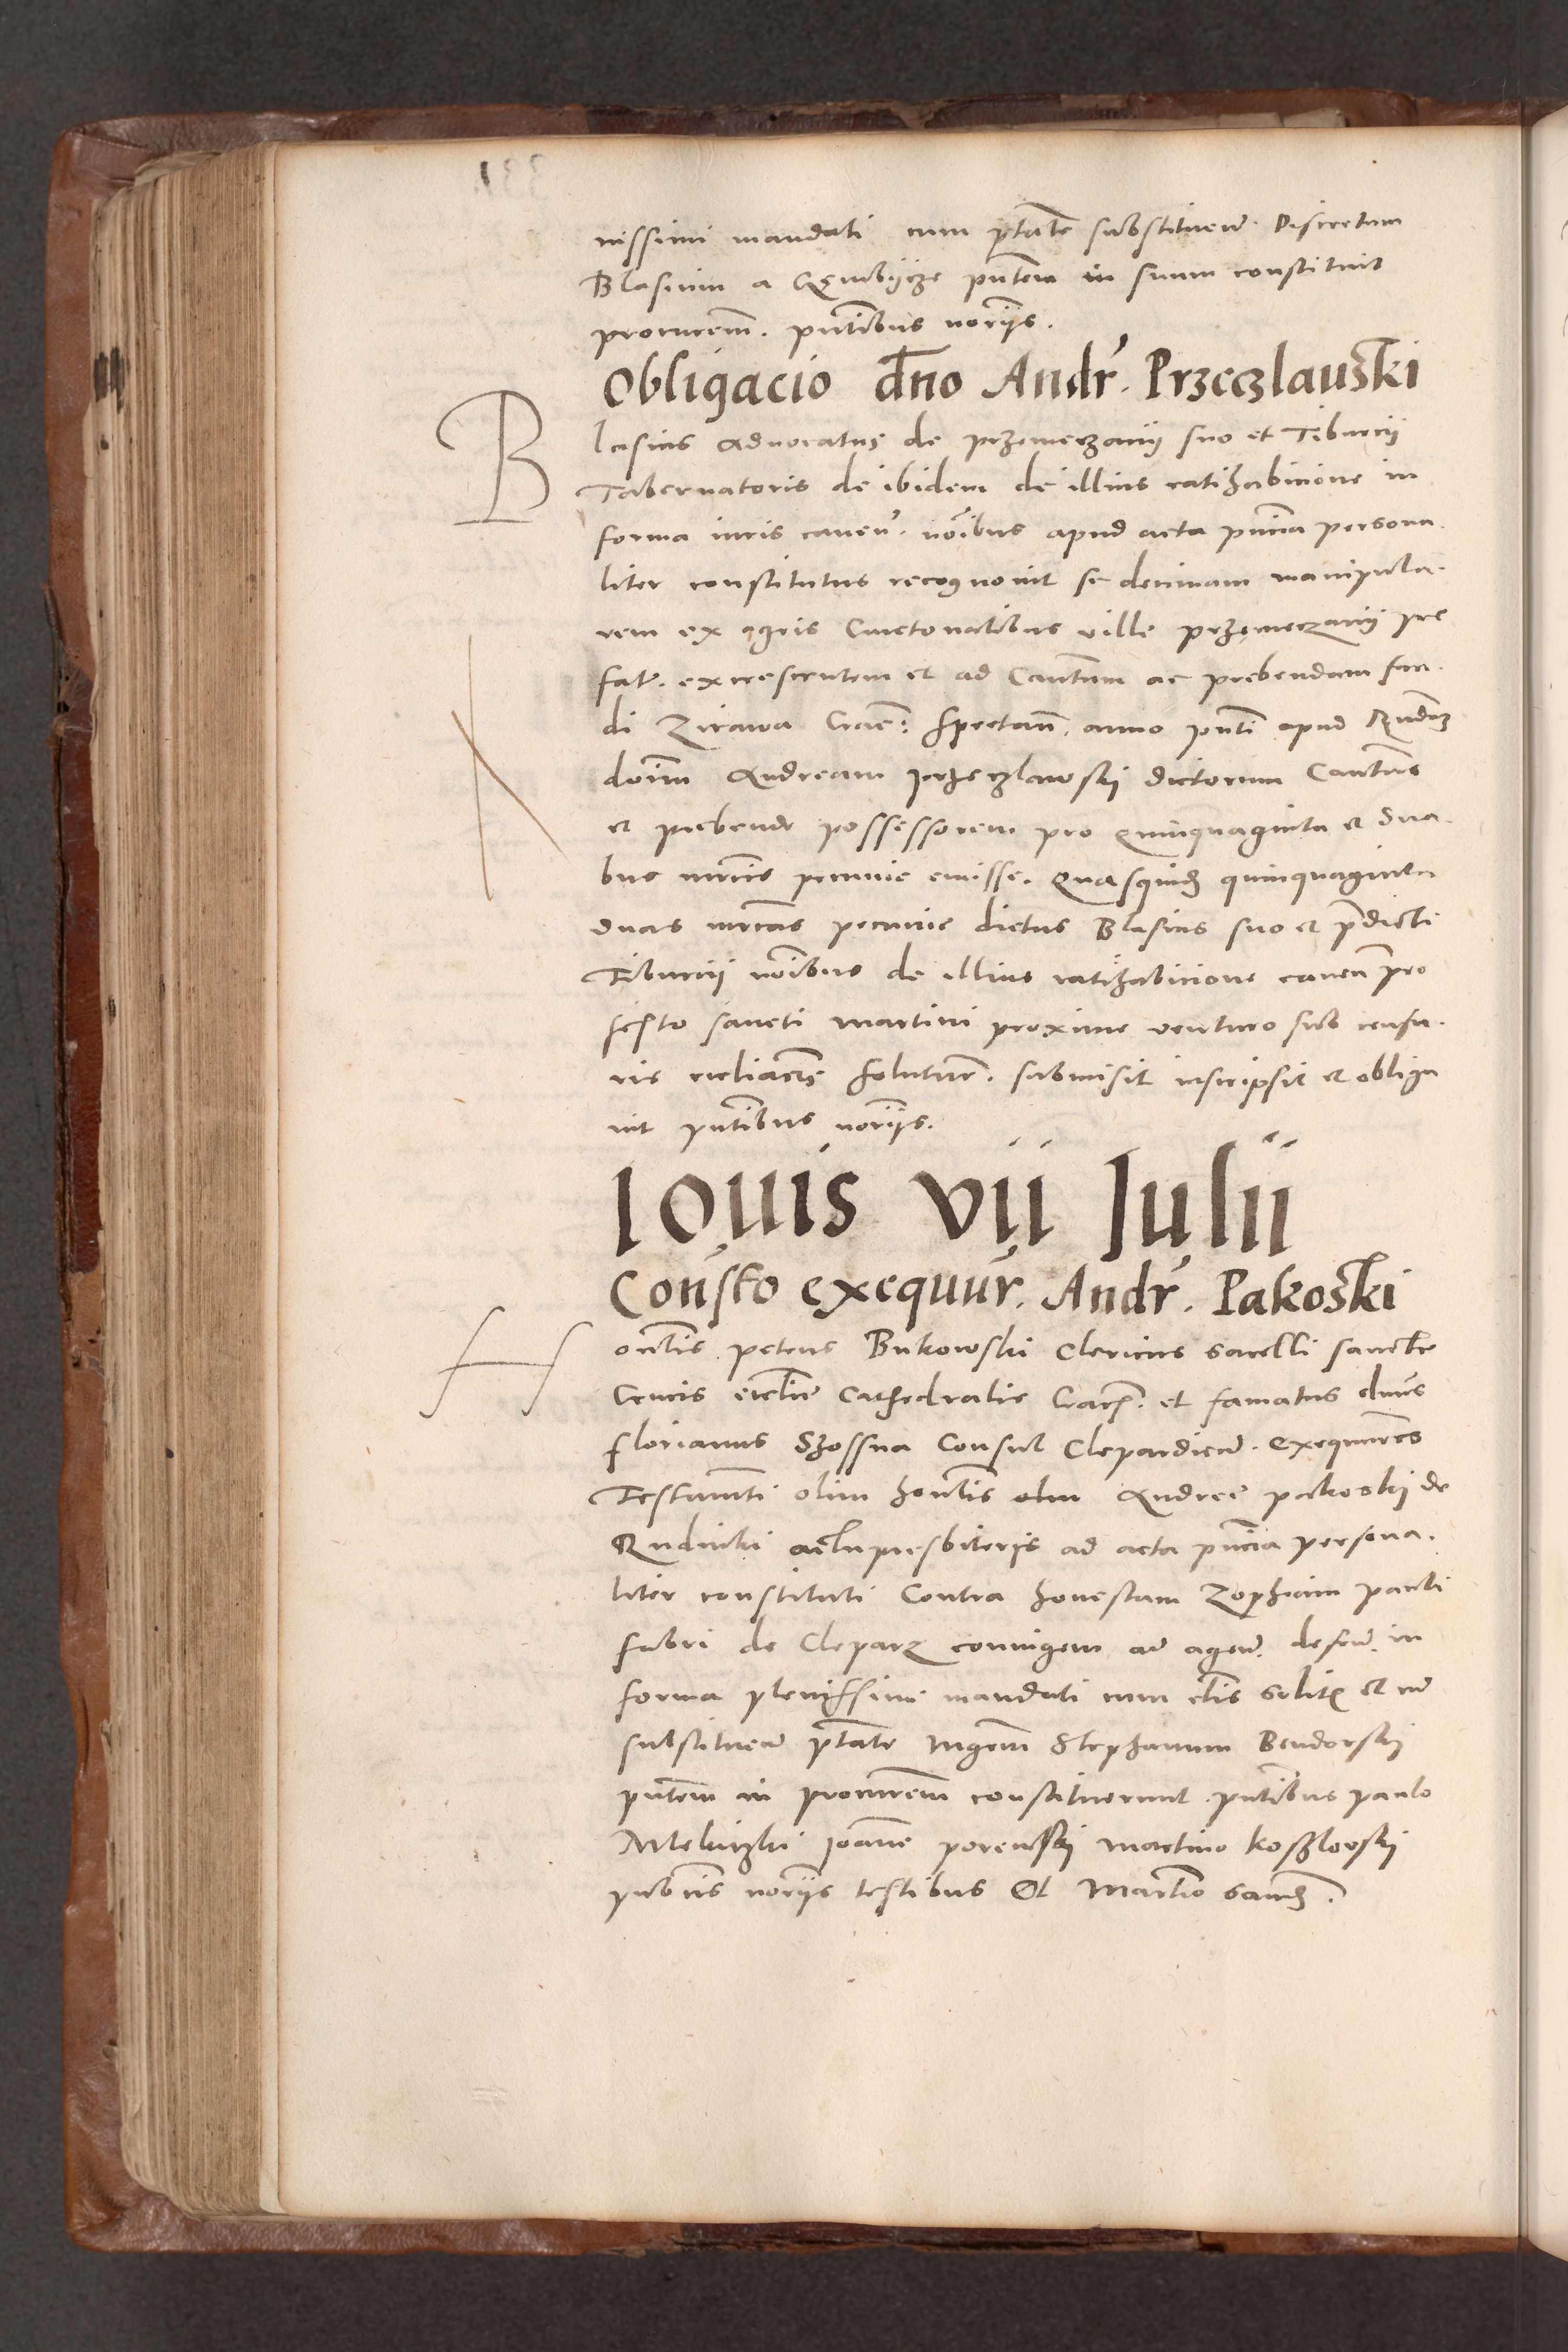 nissimi mandati cum ptate substituen. Discretum
Blasium a Gembycze pntem in suum constituit
procurem. pntibus noriis.
Obligacio dno Andr. Przeczlauski
Blasius Advocatus de przemeczany suo et Tiburcii
Tabernatoris de ibidem de illius ratihabicione in
forma iuris caven. noibus apud acta pncia persona
liter constitutus recognovit se decimam manipula
rem ex agris Cmetonalibus ville przemeczany pre
fat. excrescentem et ad Cantum ac prebendam fun
di Zirawa Crac. spectan. anno pnti apud Rndum
doim Andream przeczlawskij dictorum Cantus
et prebende possessorem pro quinquaginta et dua
bus mrcis pecunie emisse. Quasquid quinquaginta
duas mrcas pecunie dictus Blasius suo et pdicti
Tiburcii noibus de illius ratihabicione caven pro
festo sancti martini proxime venturo sub censu
ris eccliacis soluturu. submisit inscripsit et obliga
vit pntibus noriis.
Iouis vii Iulii
Consto exequur. Andr. Pakoski
Honlis petrus Bukowski Clericus sacelli sancte
Crucis ecclie Cathedralis Crac. et famatus dnus
florianus Szossna Consul Clepardien. exequutores
Testamti olim honlis olim Andree pakoskij de
Rudniki actupresbiteri ad acta pncia persona
liter constituti Contra honestam Zophiam pauli
fabri de Cleparz coniugem ad agen. defen. in
forma plenissimi mandati cum clis solit et cu
substituen ptate Ingem Stephanum Bendorskij
pntem in procurem constituerunt. pntibus paulo
Joane porenskij martino koszlovskij
publicis noriis testibus Et Martio